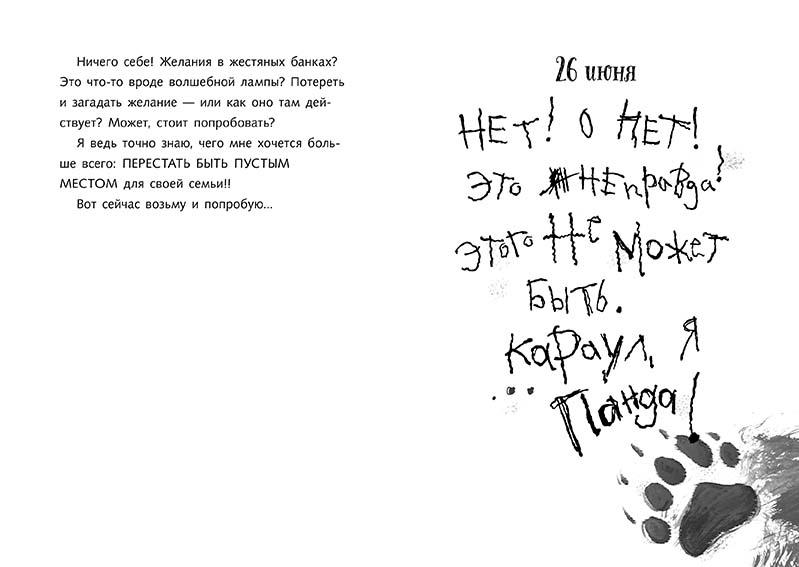 Ничего себе! Желания в жестяных банках?
Это что-то вроде волшебной лампы? Потереть
и загадать желание — или как оно там дей-
ствует? Может, стоит попробовать?
Я ведь точно знаю, чего мне хочется боль-
ше всего: ПЕРЕСТАТЬ БЫТЬ ПУСТЫМ
МЕСТОМ для своей семьи!!
Вот сейчас возьму и попробую...
26 июня
НЕТ! О НЕТ!
Это неправда!
Этого не может
быть.
Караул, я
... панда!